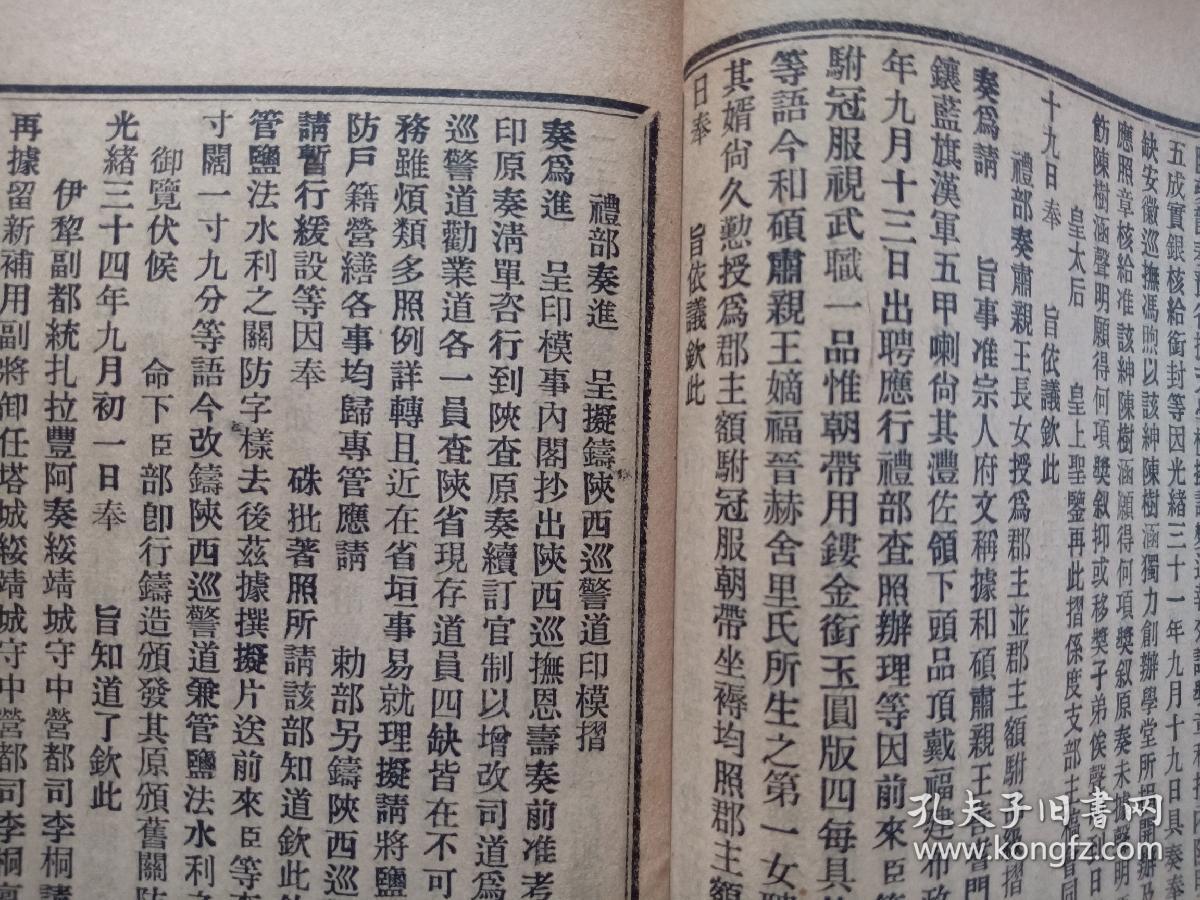 五成實銀核給銜封等因光緒三十一年九月十九日具奏奉
缺安徽巡撫馮煦以該紳陳樹涵獨力創辦學堂所捐開辦及
應照章核給准該紳陳樹涵願得何項獎叙原奏未據聲明
飭陳樹涵聲明願得何項獎叙抑或移獎子弟俟聲
皇太后 皇上聖鑒再此摺係度支部主稿會同
十九日奉 旨依議欽此
禮部奏肅親王長女授爲郡主並郡主額駙
奏爲請 旨事准宗人府文稱據和碩肅親王善
鑲藍旗漢軍五甲喇尙其灃佐領下頭品頂戴福建布政
年九月十三日出聘應行禮部查照辦理等因前來臣等
駙冠服視武職一品惟朝帶用鏤金銜玉圓版四每具
等語今和碩肅親王嫡福晉赫舍里氏所生之第一女
其婿尙久懃授爲郡主額駙冠服朝帶坐褥均照郡主額
日奉 旨依議欽此
禮部奏進 呈擬鑄陝西巡警道印模摺
奏爲進 呈印模事內閣抄出陝西巡撫恩壽奏前准考
印原奏淸單咨行到陝查原奏續訂官制以增改司道爲
巡警道勸業道各一員查陝省現存道員四缺皆在不可
務雖煩類多照例詳轉且近在省垣事易就理擬請將鹽
防戶籍營繕各事均歸專管應請 勅部另鑄陝西巡
請暫行緩設等因奉 硃批著照所請該部知道欽此
管鹽法水利之關防字樣去後茲據撰擬片送前來臣等
寸闊一寸九分等語今改鑄陝西巡警道兼管鹽法水利之
御覽伏候 命下臣部卽行鑄造頒發其原頒舊關防
光緒三十四年九月初一日奉 旨知道了欽此
伊犂副都統扎拉豐阿奏綏靖城守中營都司李桐請
再據留新補用副將卸任塔城綏靖城守中營都司李桐
孔夫子旧書网
www.kongfz.com